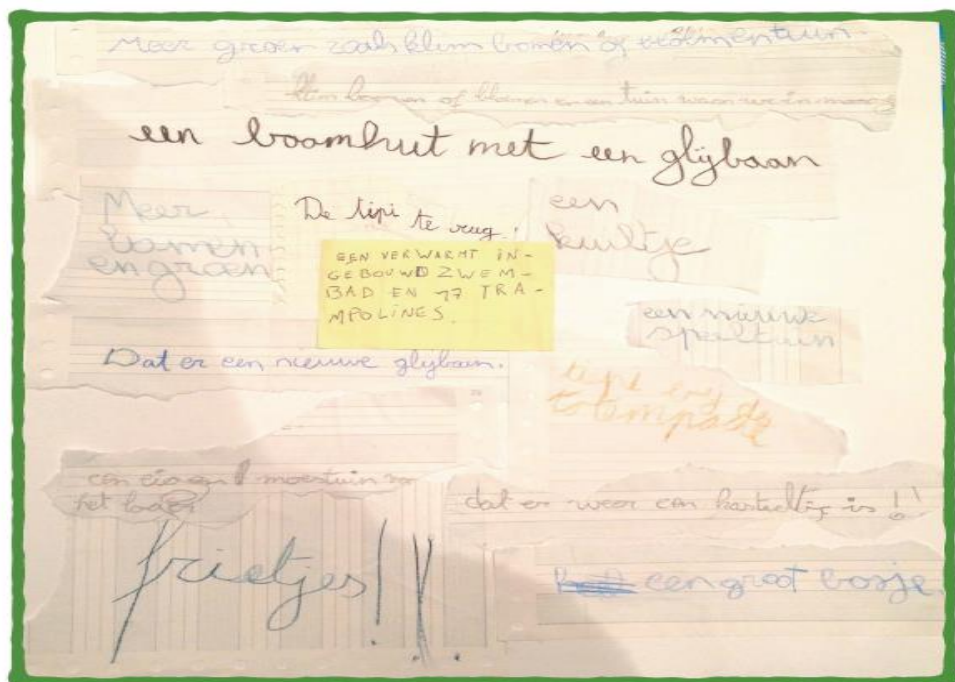 Meer groen zoals klim bomen of
klim bomen of bloemen en een tuin waar we in mogen
een boomhut met een glijbaan
Meer
bomen
en groen
De tipi te rug!
een
kuiltje
EEN VERWARMT IN-
GEBOUWD ZWEM-
BAD EN 17 TRA-
MPOLINES.
een nieuwe
speeltuin
Dat er een nieuwe glijbaan.
een eigen moestuin
het
dat er weer een is!!
frietjes!!!
een groot bosje.